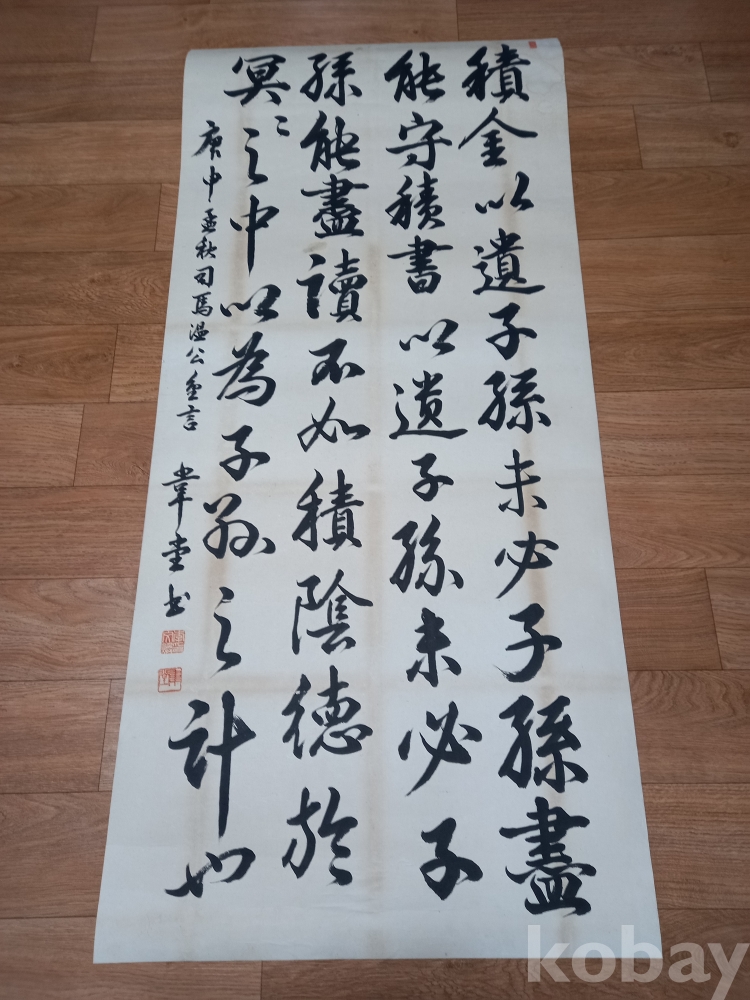 積金以遺子孫未必子孫盡
能守積書以遺子孫未必子
孫能盡讀不如積陰德於
冥〻之中以為子孫之計也
庚申孟秋司馬溫公金言 韋堂書
kobay